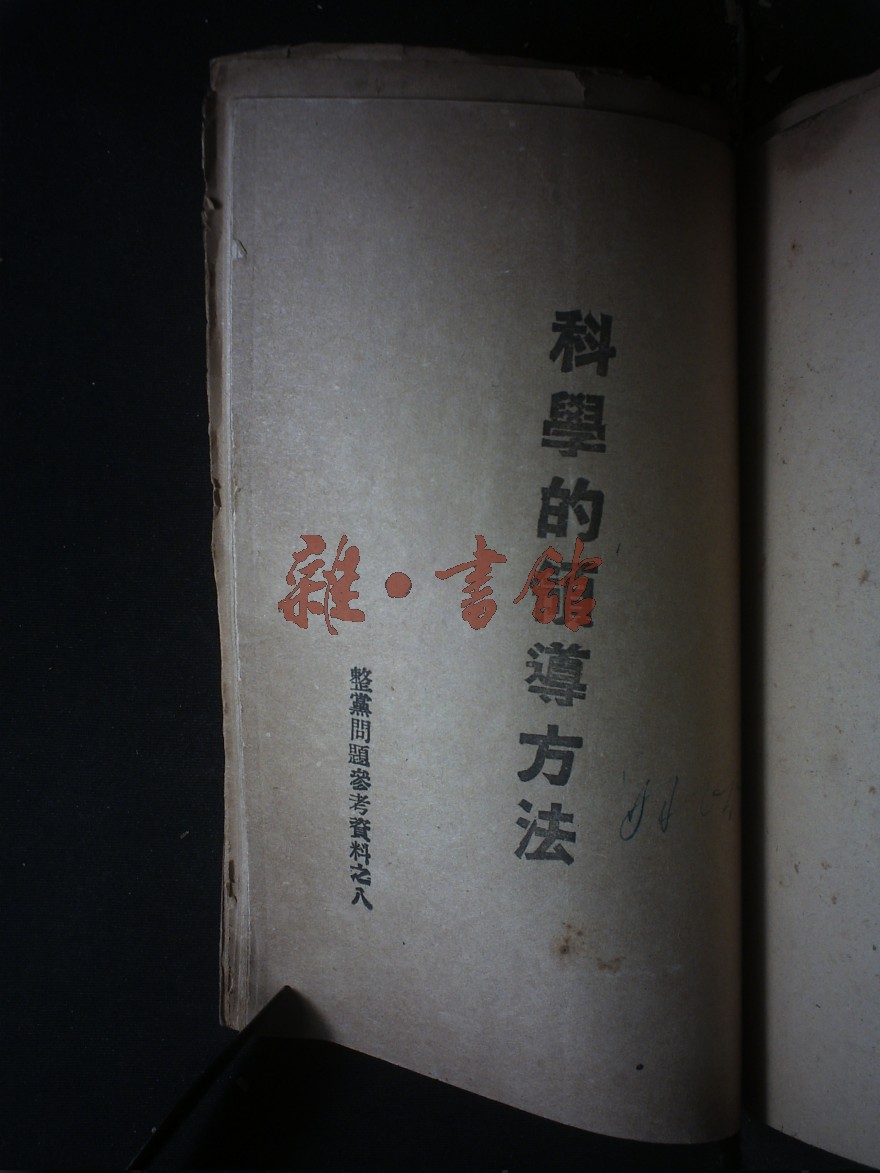 科學的領導方法
整黨問題參考資料之八
雜·書館